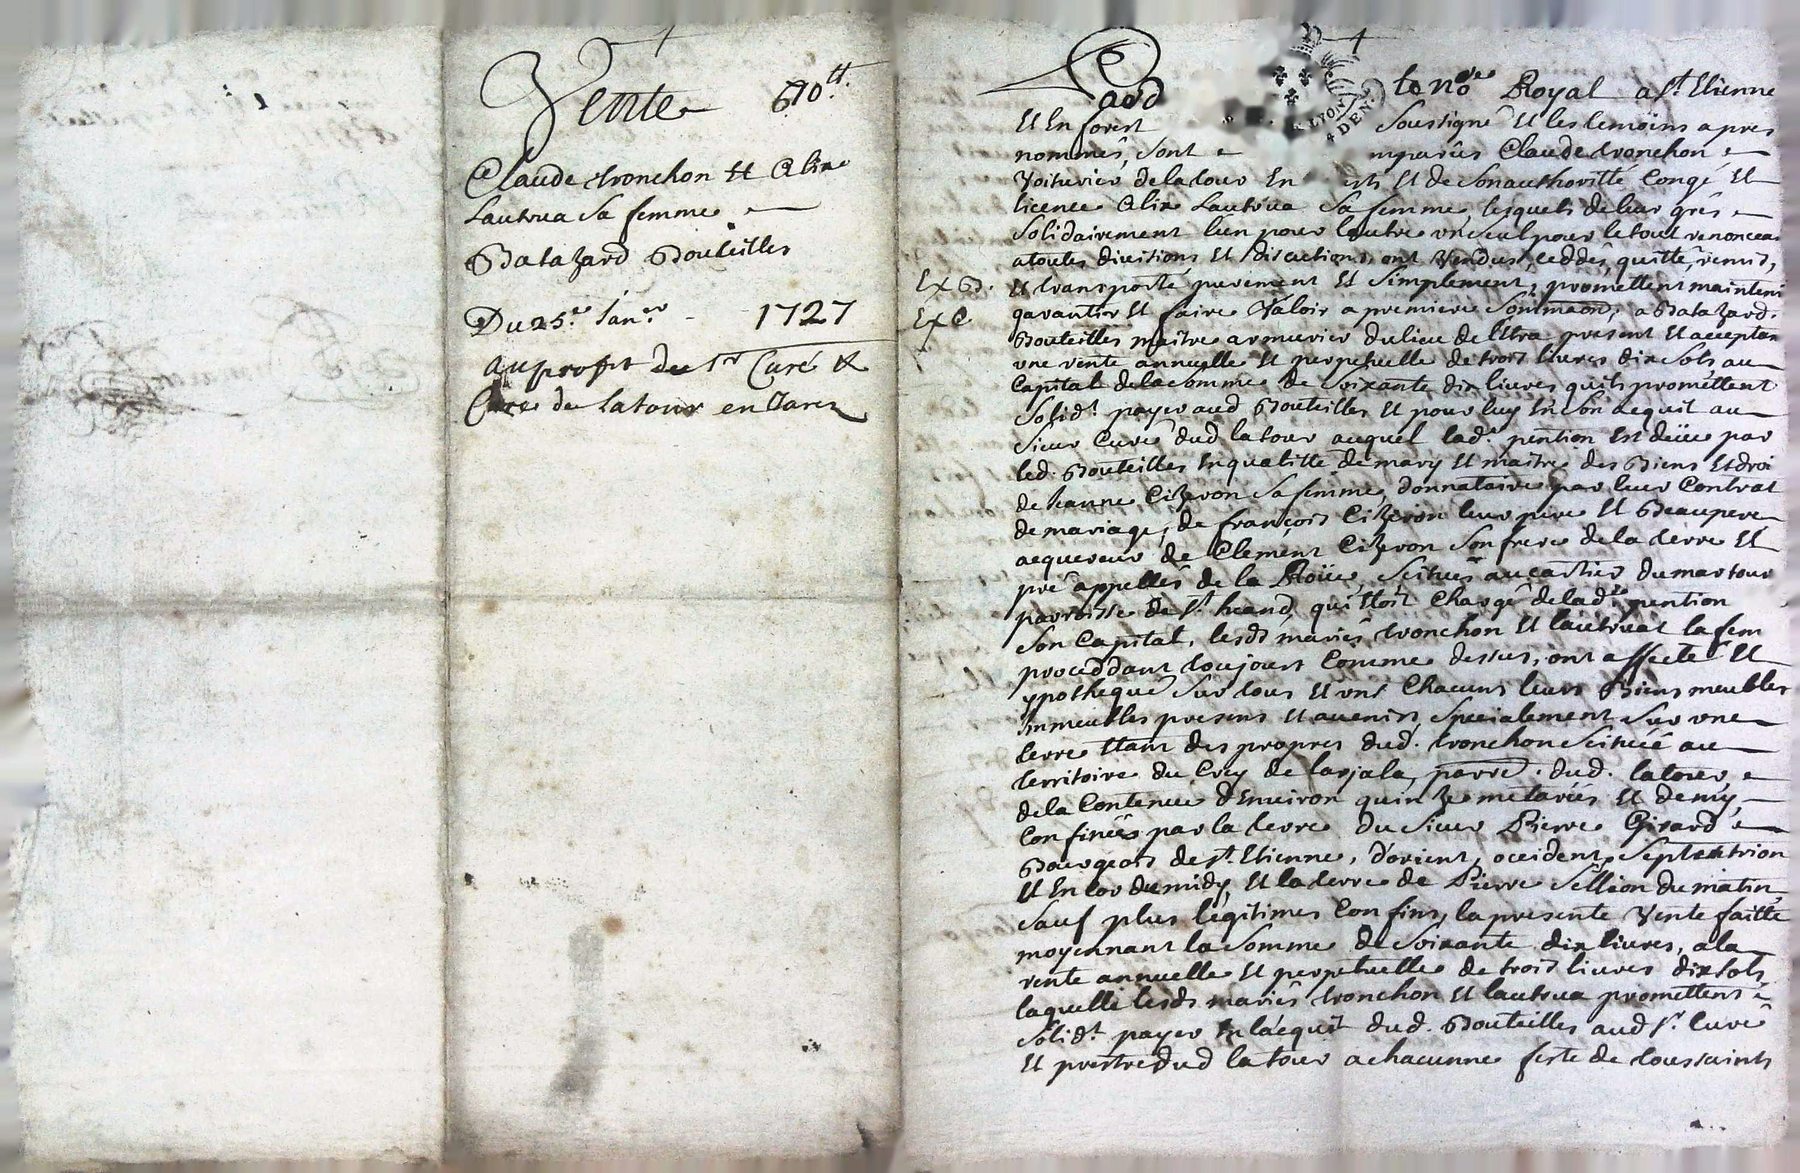 Vente 670tt.
Claude tronchon Et Alix
Lautrua Sa femme
Batazard Bouteilles
Du 25e. Janer. 1727
au profit du sr Curé &
Cure de latour en Jarez
Pard to nore Royal a St. Etienne
Et En forest Soussigné Et les temoins apres
nommés, sont mparûs Claude tronchon
Voiturier de la tour En Et de Son authoritté Congé Et
licence Alix Lautrua Sa femme, lesquels de leur grés
Solidairement l'un pour l'autre un Seul pour le tout renoncean
atoutes divitions Et discutions, ont Vendus, ceddés, quitté, remis,
Ex B. Et transporté purement Et Simplement, promettent mainteni
Ex C garantir Et faire Valoir a premiere Sommaõn, a Batazard
Bouteilles maitre armurier du lieu de present Et acceptan
une rente annuelle Et perpetuelle de trois livres dix Sols au
Capital de la Somme de Soixante dix livres quils promettent
Solidt. payer aud Bouteilles Et pour luy En Son acquit au
Sieur Curé dud latour auquel lade. pention Est deüe par
led. Bouteilles En qualitté de mary Et maitre des Biens Et droi
de Jeanne Cizeron Sa femme, donnataire par leur Contrat
de mariage, de françois Cizeron leur pere Et Beaupere
acquereur de Clement Cizeron Son frere de la terre Et
pré appellés de la Roüe, Scitués au cartier du martour
parroisse de St. heand, qui Etoit Chargé de lade pention
Son Capital, lesds mariés tronchon Et lautruat la fem
proceddant toujours Comme dessus, ont affecté Et
ypothequé Sur tous Et uns Chacuns leurs Biens meubles
Immeubles presens Et avenirs, Specialement Sur une
terre Etant des propres dud. tronchon Scituée au
territoire du Crey de larjala, parre. dud. latour
de la Contenue d'Environ quinze metariés Et demy,
Confinées par la terre du Sieur Pierre Girard
Bourgeois de St. Etienne, d'orient, occident, Septentrion
Et En Cor du midy, Et la terre de Pierre Sellion du matin
Sauf plus légitimes Confins, la presente Vente faitte
moyennant la Somme de Soixante dix livres, a la
rente annuelle Et perpetuelle de trois livres dix sols,
laquelle lesds mariés tronchon Et lautrua promettent
Solidt. payer En lacquit dud. Bouteilles aud Sr. Curé
Et prestre dud latour a chacunne feste de toussaints